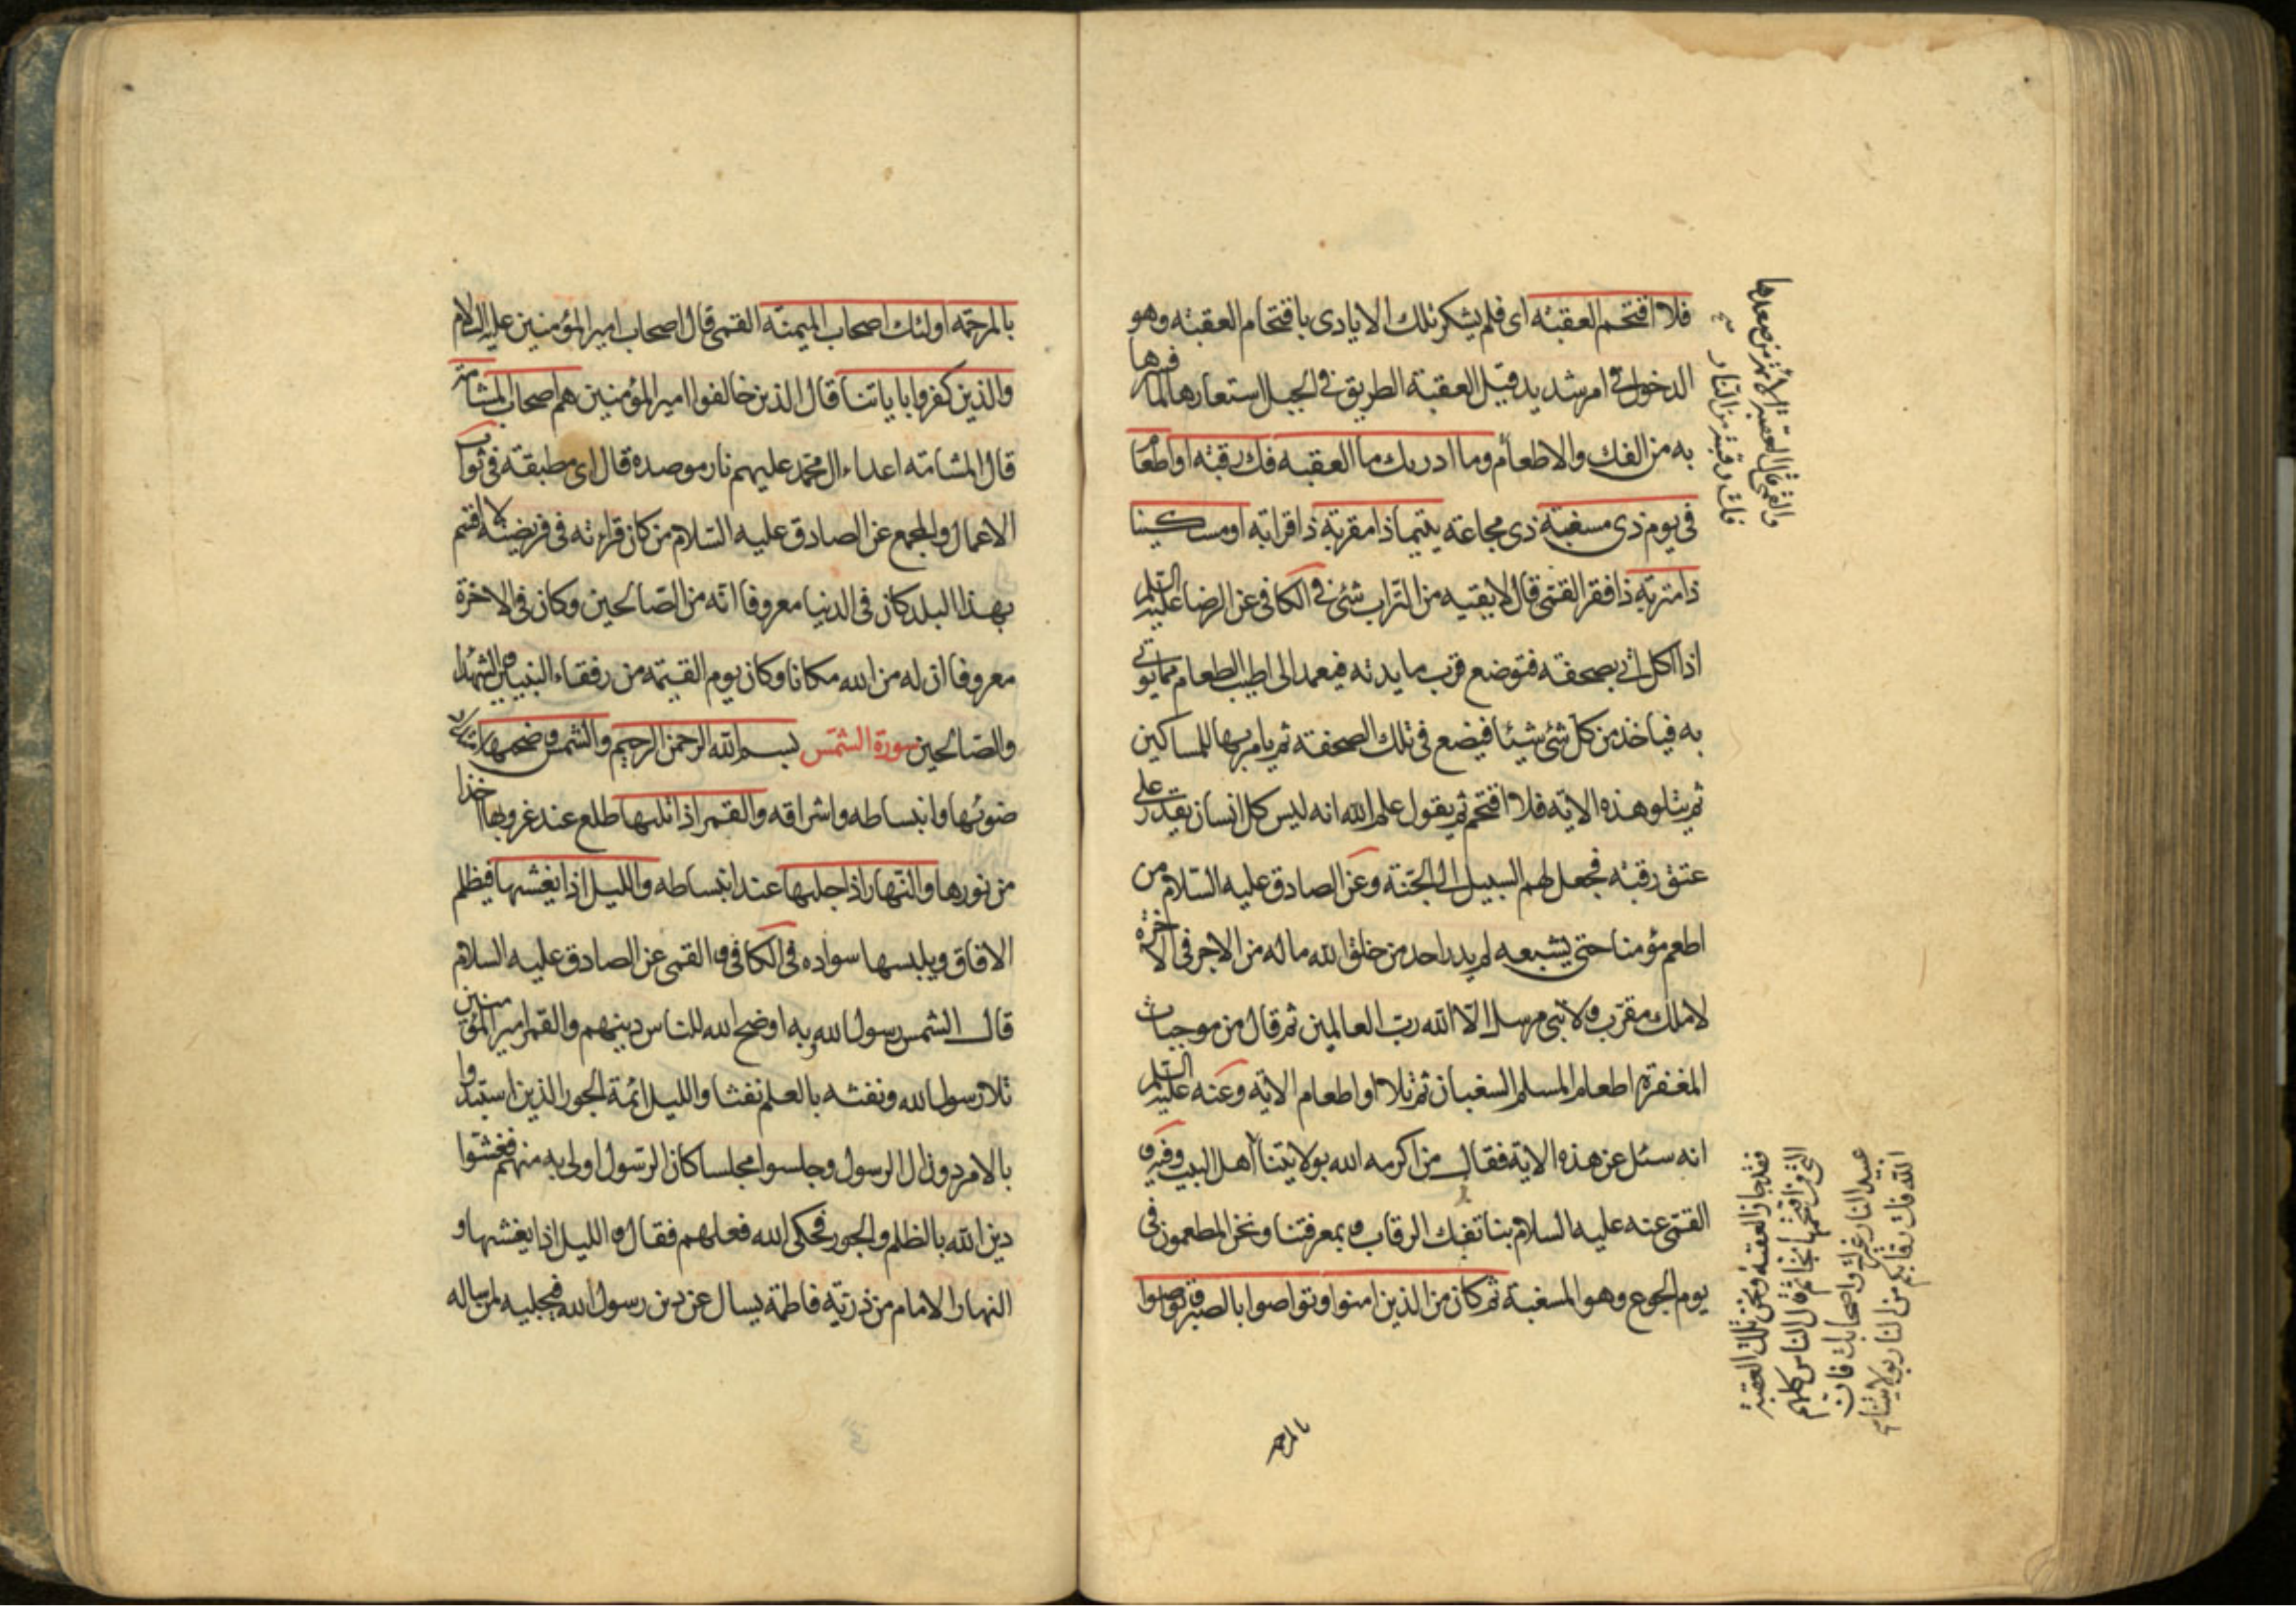 فلا اقتحم العقبة اى فلم يشكر تلك الايادى باقتحام العقبة وهو
الدخول فى امر شديد قيل العقبة الطريق فى الجبل استعارها لما فسرها
به من الفك والاطعام وما ادريك ما العقبه فك رقبة او اطعام
فى يوم ذى مسغبة ذى مجاعة يتيما ذا مقربة ذا قرابة او مسكينا
ذا متربة ذا فقر القمى قال لا يقيه من التراب شئ فى الكافى عن الرضا عليه السلم
اذا اكل اتى بصحفة فتوضع قرب مايدته فيعمد الى اطيب الطعام مما يوتى
به فياخذ من كل شئ شيئا فيضع فى تلك الصحفة ثم يامر بها للمساكين
ثم يتلو هذه الاية فلا اقتحم ثم يقول علم الله انه ليس كل انسان يقدر على
عتق رقبة فجعل لهم السبيل الى الجنة وعن الصادق عليه السلام من
اطعم مؤمنا حتى يشبعه لم يدر احد من خلق الله ما له من الاجر فى الاخرة
لا ملك مقرب ولا نبى مرسل الا الله رب العالمين ثم قال من موجبات
المغفرة اطعام المسلم السغبان ثم تلا او اطعام الاية وعنه عليه السلم
انه سئل عن هذه الاية فقال من اكرمه الله بولايتنا اهل البيت
القمى عنه عليه السلام بنا تفك الرقاب وبمعرفتنا ونحن المطعمون فى
يوم الجوع وهو المسغبة ثم كان من الذين امنوا وتواصوا بالصبر وتواصوا
بالمرحمه
والقمى قال العقبة الائمة من صعدها
فك رقبته من النار
فقد جاز العقبة ونحن تلك العقبة
التى من اقتحمها نجا ثم قال الناس كلهم
عبيد النار غيرك واصحابك فان
الله فك رقابكم من النار بولايتنا
بالمرحمة اولئك اصحاب الميمنة القمى قال اصحاب امير المؤمنين عليه السلام
والذين كفروا باياتنا قال الذين خالفوا امير المؤمنين هم اصحاب المشامة
قال المشامة اعداء ال محمد عليهم نار موصدة قال اى مطبقة فى ثواب
الاعمال والمجمع عن الصادق عليه السلام من كان قراءته فى فريضة لا اقسم
بهذا البلد كان فى الدنيا معروفا انه من الصالحين وكان فى الاخرة
معروفا ان له من الله مكانا وكان يوم القيمة من رفقاء النبيين والشهدا
والصالحين سورة الشمس بسم الله الرحمن الرحيم والشمس وضحيها
ضوئها وانبساطه واشراقه والقمر اذا تليها طلع عند غروبها اخذا
من نورها والنهار اذا جليها عند انبساطه والليل اذا يغشيها فيظلم
الافاق ويلبسها سواده فى الكافى والقمى عن الصادق عليه السلام
قال الشمس رسول الله به اوضح الله للناس دينهم والقمر امير المؤمنين
تلا رسول الله ونفثه بالعلم نفثا والليل ائمة الجور الذين استبدوا
بالامر دون ال الرسول وجلسوا مجلسا كان الرسول اولى به منهم فغشوا
دين الله بالظلم والجور فحكى الله فعلهم فقال والليل اذا يغشيها و
النهار الامام من ذرية فاطمة يسال عن دين رسول الله فيجليه لمن ساله